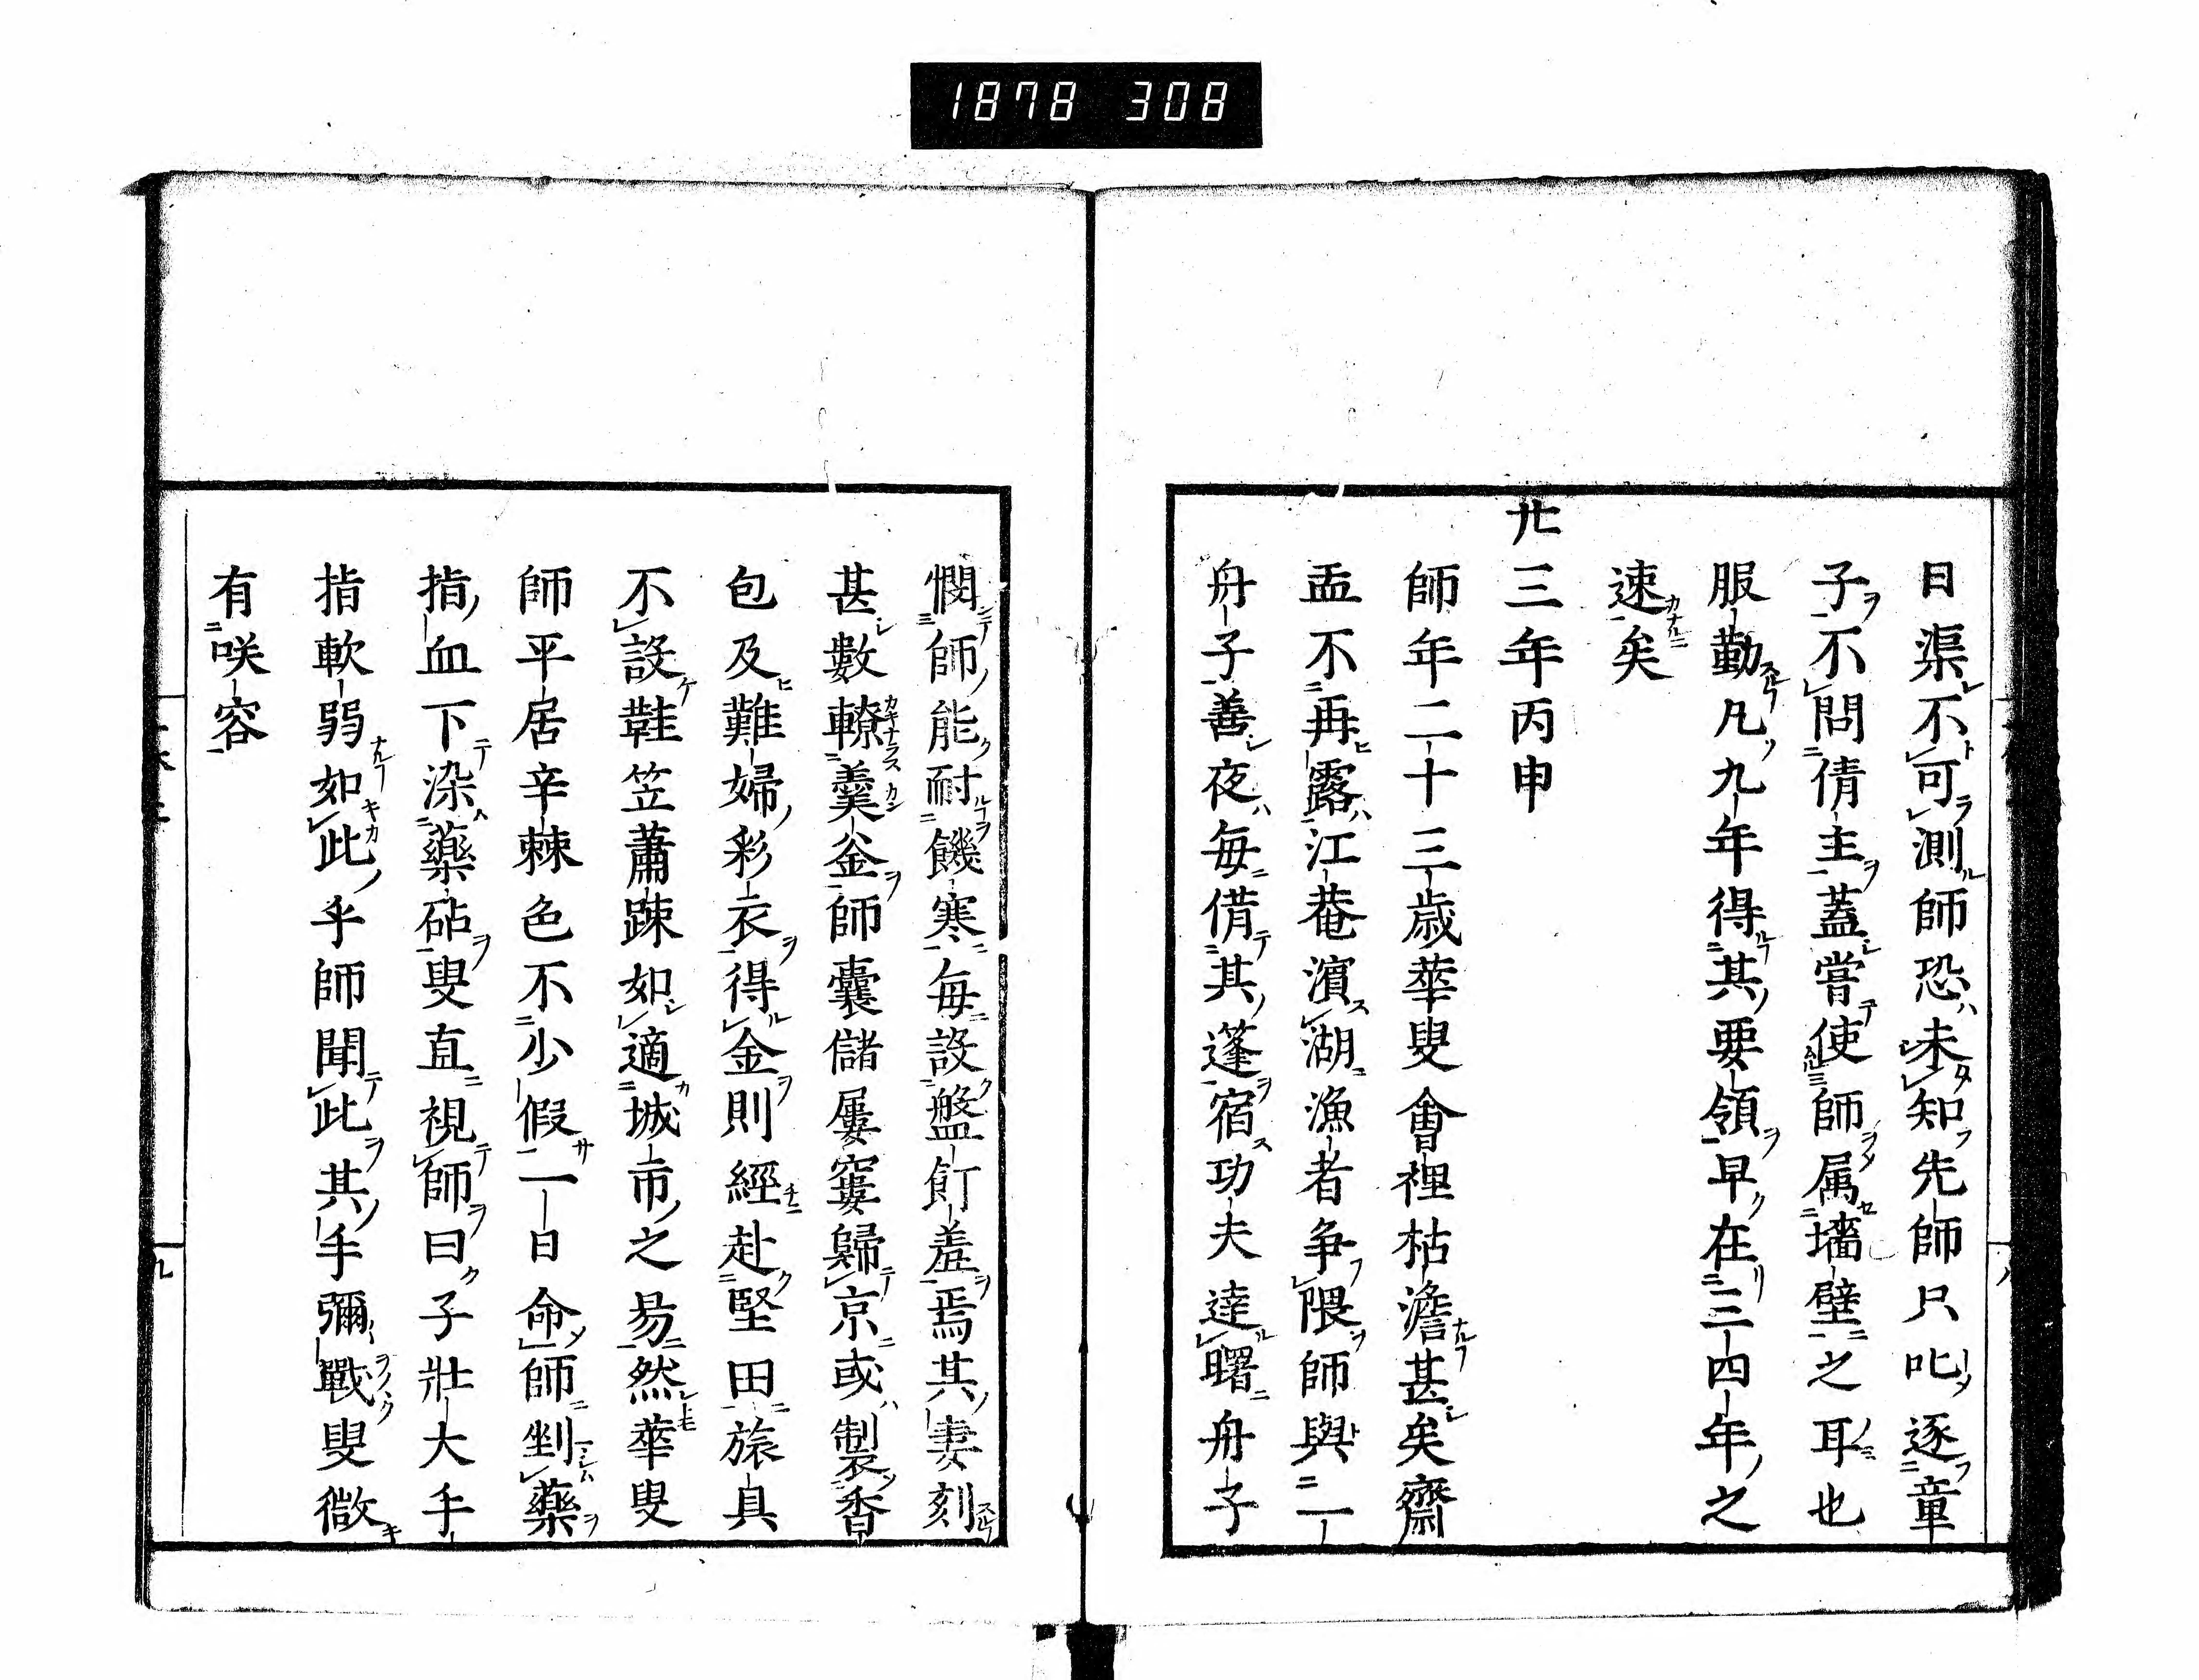 1878 308
日渠不可測師恐未知先師只叱逐童
子不問倩主蓋嘗使師属墻壁之耳也
服勤凡九年得其要領早在三四年之
速矣
廿三年丙申
師年二十三歳華叟會裡枯澹甚矣齋
盂不再露江菴濱湖漁者争隈師與二一
舟子善夜毎借其篷宿功夫達曙舟子
憫師能耐饑寒毎設盤飣羞焉其妻刻
甚數轑羹釡師嚢儲屢窶歸京或製香
包及難婦彩衣得金則經赴堅田旅具
不設鞋笠蕭踈如適城市之易然華叟
師平居辛棘色不少假一日命師剉藥
指血下染藥砧叟直視師曰子壮大手
指軟弱如此乎師聞此其手彌戰叟微
有咲容